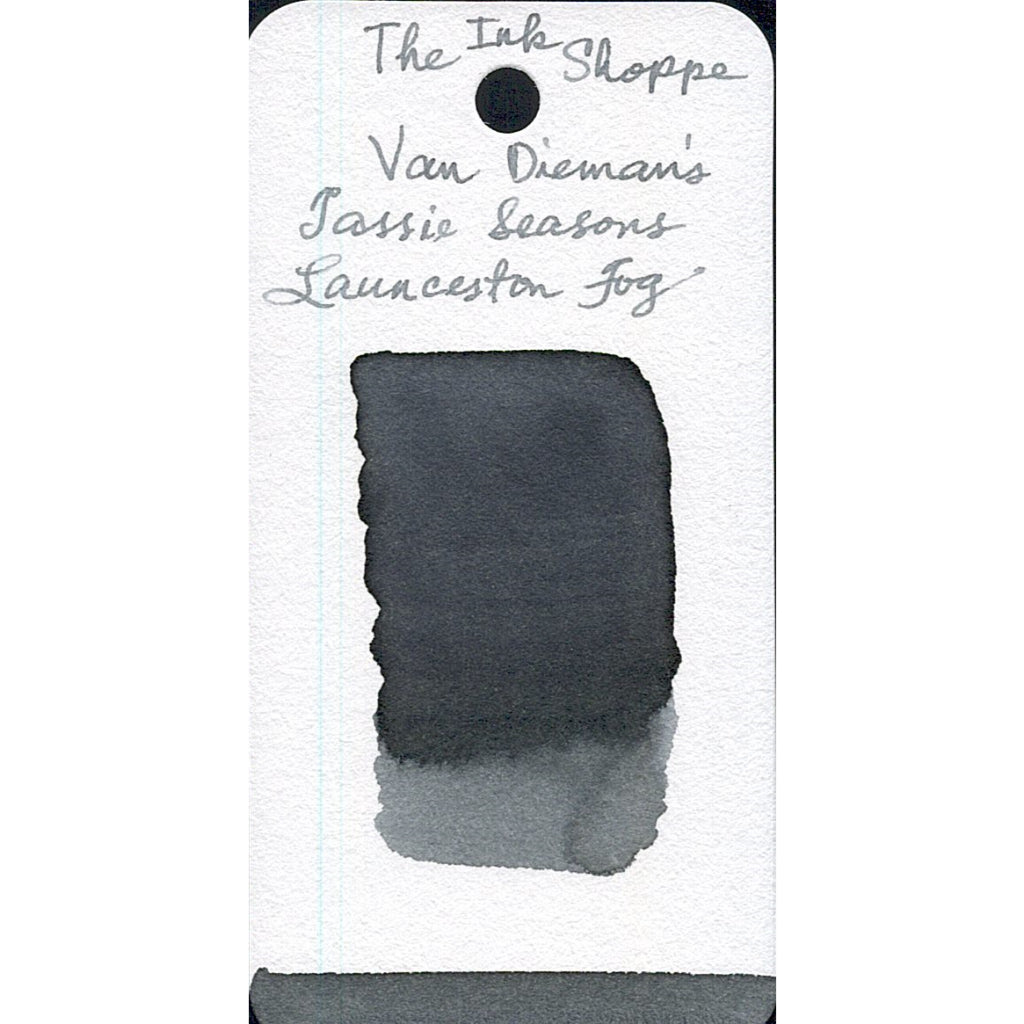 The Ink Shoppe
Van Dieman's
Tassie Seasons
Launceston Fog